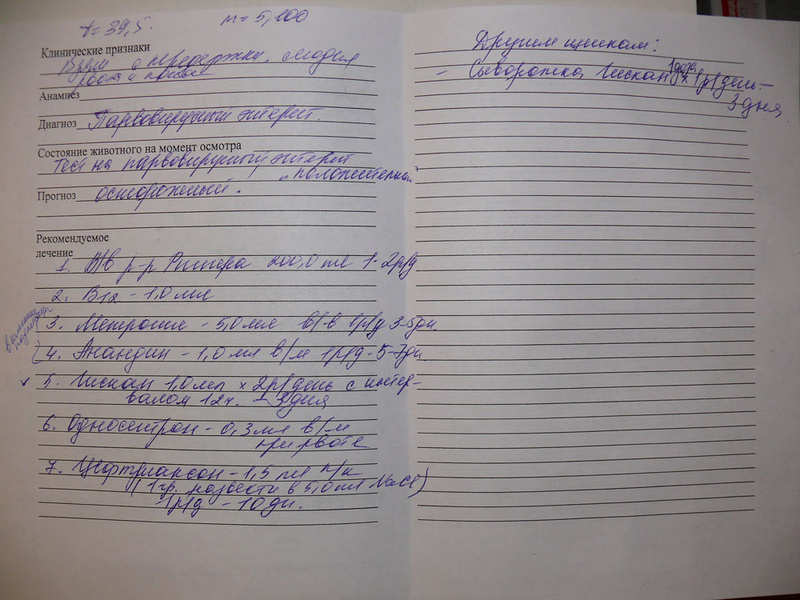 t = 39,5.
m = 5,100
Клинические признаки
с передержки, сегодня
Анамнез
Диагноз Парвовирусный энтерит.
Состояние животного на момент осмотра
Тест на парвовирусный энтерит
"положительный"
Прогноз осторожный.
Рекомендуемое
лечение
1. В/в р-р Рингера 200,0 мл 1-2р/д
2. B12 - 1,0 мл
3. - 5,0 мл в/в 1р/д 3-5дн.
4. Анандин - 1,0 мл в/м 1р/д - 5-7дн
v 5. Гискан 1,0мл х 2р/день с интер-
валом 12ч. - 3дня
6. - 0,3мл в/м
при рвоте
7. Цефтриаксон - 1,5 мл
(1 гр. развести в 5,0 мл NaCl)
1р/д - 10дн.
Другим щенкам:
- Сыворотка Гискан 1доза х 1р/день -
3 дня